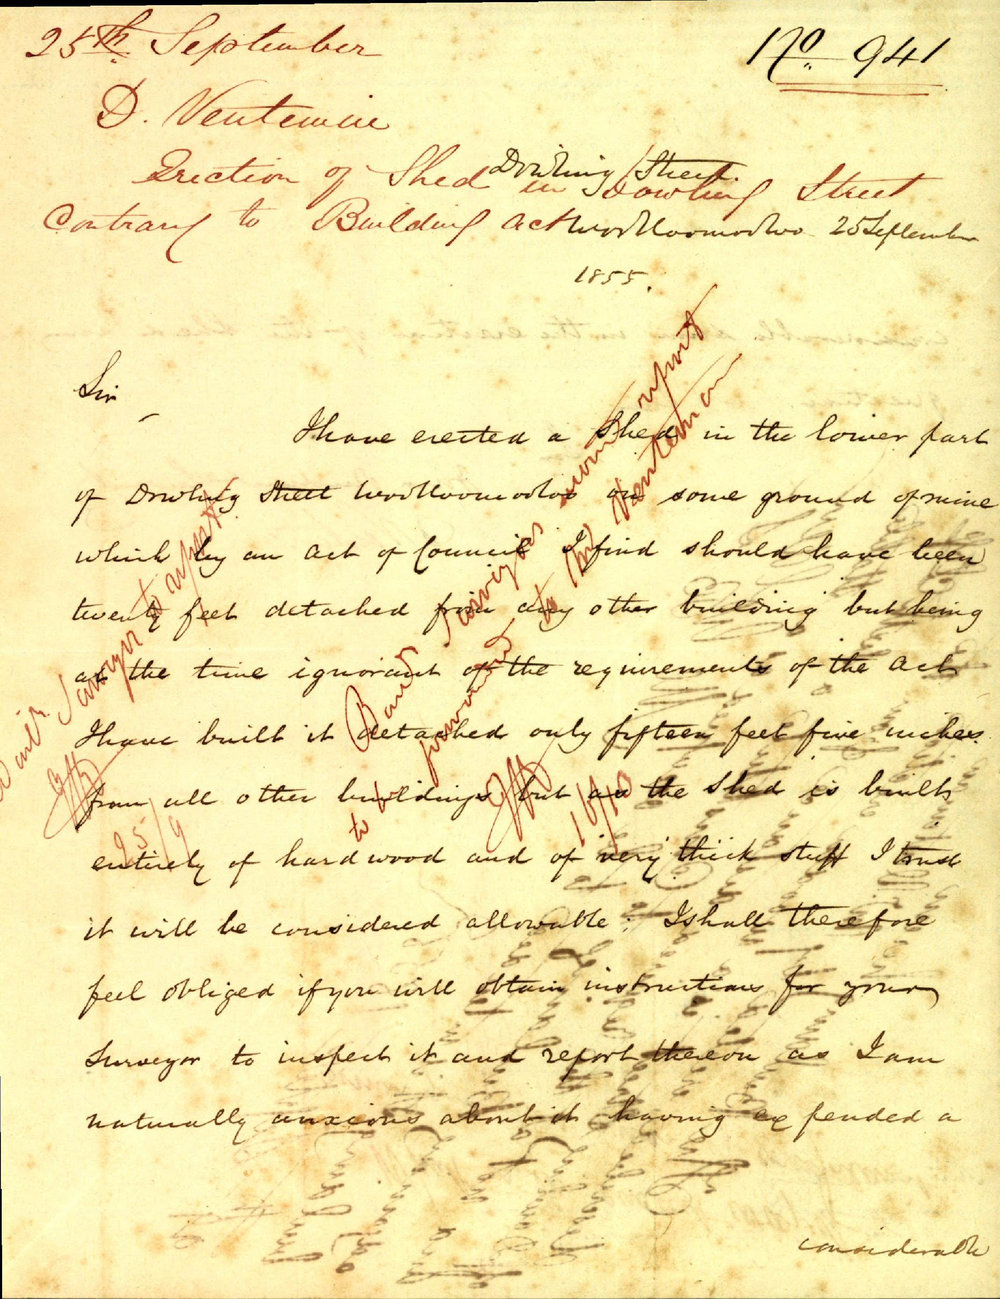 25th September
No 941
D. Venteman
Erection of Shed in Dowling Street
Contrary to Building Act
Dowling Street.
Woolloomooloo 25 September
1855.
Sir
I have erected a Shed in the lower part
of Dowling Street Woolloomooloo on some ground of mine
which by an Act of Council I find should have been
twenty feet detached from any other building but being
at the time ignorant of the requirements of the Act
I have built it detached only fifteen feet five inches
from all other buildings but as the Shed is built
entirely of hard wood and of very thick stuff I trust
it will be considered allowable. I shall therefore
feel obliged if you will obtain instructions for your
Surveyor to inspect it and report thereon as I am
naturally anxious about it having expended a
considerable
Surveyor to report
25/9
Surveyors report
to be forwarded to Mr Venteman
16/10